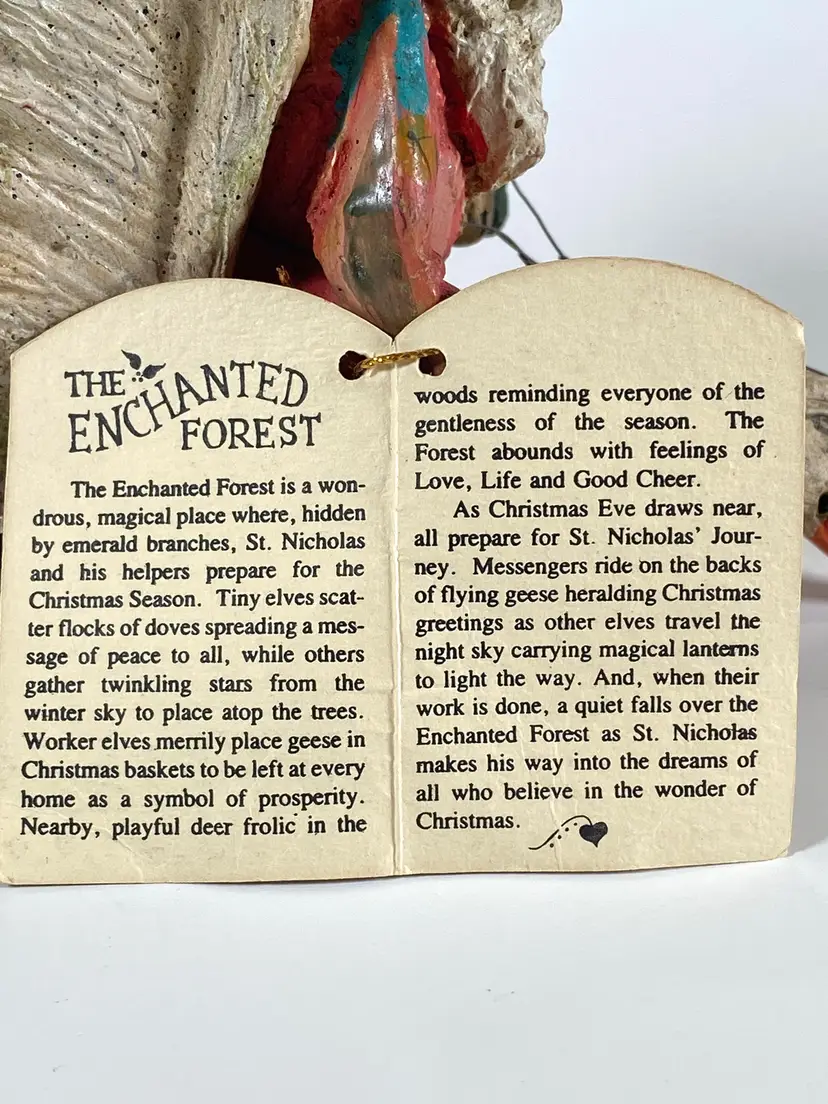 THE
ENCHANTED
FOREST
The Enchanted Forest is a won-
drous, magical place where, hidden
by emerald branches, St. Nicholas
and his helpers prepare for the
Christmas Season. Tiny elves scat-
ter flocks of doves spreading a mes-
sage of peace to all, while others
gather twinkling stars from the
winter sky to place atop the trees.
Worker elves merrily place geese in
Christmas baskets to be left at every
home as a symbol of prosperity.
Nearby, playful deer frolic in the
woods reminding everyone of the
gentleness of the season. The
Forest abounds with feelings of
Love, Life and Good Cheer.
As Christmas Eve draws near,
all prepare for St. Nicholas' Jour-
ney. Messengers ride on the backs
of flying geese heralding Christmas
greetings as other elves travel the
night sky carrying magical lanterns
to light the way. And, when their
work is done, a quiet falls over the
Enchanted Forest as St. Nicholas
makes his way into the dreams of
all who believe in the wonder of
Christmas.